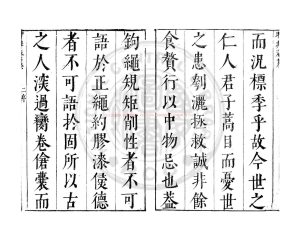 而況標季乎故今世之
仁人君子蒿目而憂世
之患剞灑拯救誠非餘
食贅行以中物忌也葢
鉤繩規矩削性者不可
語於正繩約膠漆侵德
者不可語於固所以古
之人淡過臠卷傖囊而